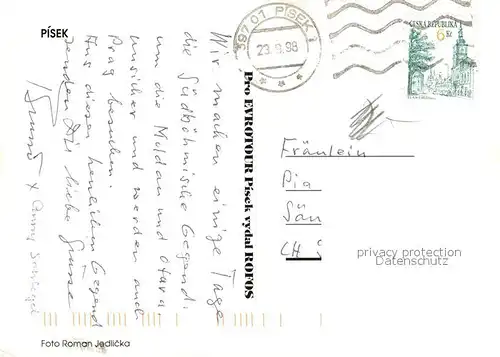 PÍSEK
397 01 PÍSEK 1
23.6.98
ČESKÁ REPUBLIKA
6 Kč
Wir machen einige Tage
die Südböhmische Gegend
um die Moldau und Otava
unsicher und werden auch
Prag besuchen.
Aus dieser herrlichen Gegend
senden Dir liebe Grüsse
Pro EVROTOUR Písek vydal ROFOS
Fräulein
Pia
Sän
CH
privacy protection
Datenschutz
Foto Roman Jedlička